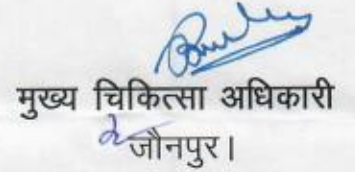 मुख्य चिकित्सा अधिकारी
जौनपुर।